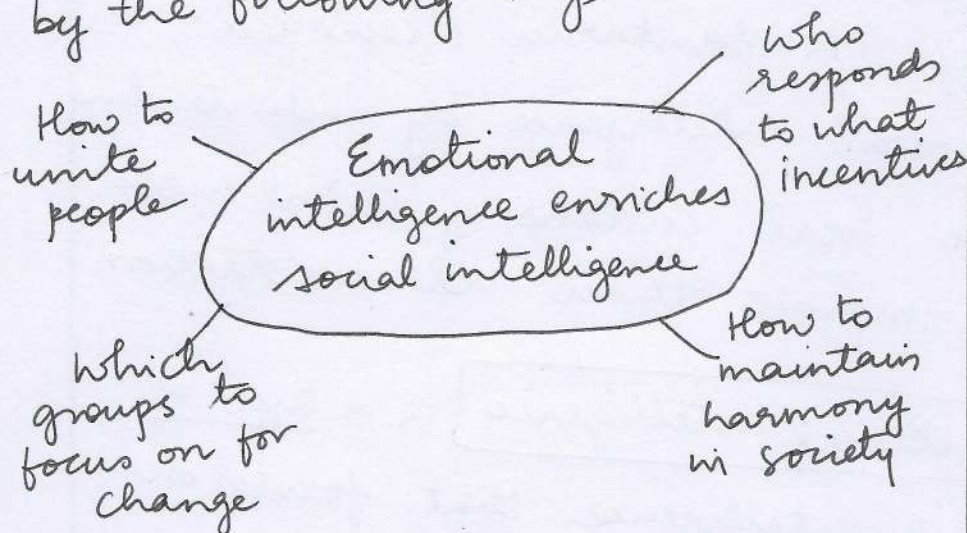 by the following
How to
unite
people
Emotional
intelligence enriches
social intelligence
Who
responds
to what
incentives
Which
groups to
focus on for
change
How to
maintain
harmony
in society